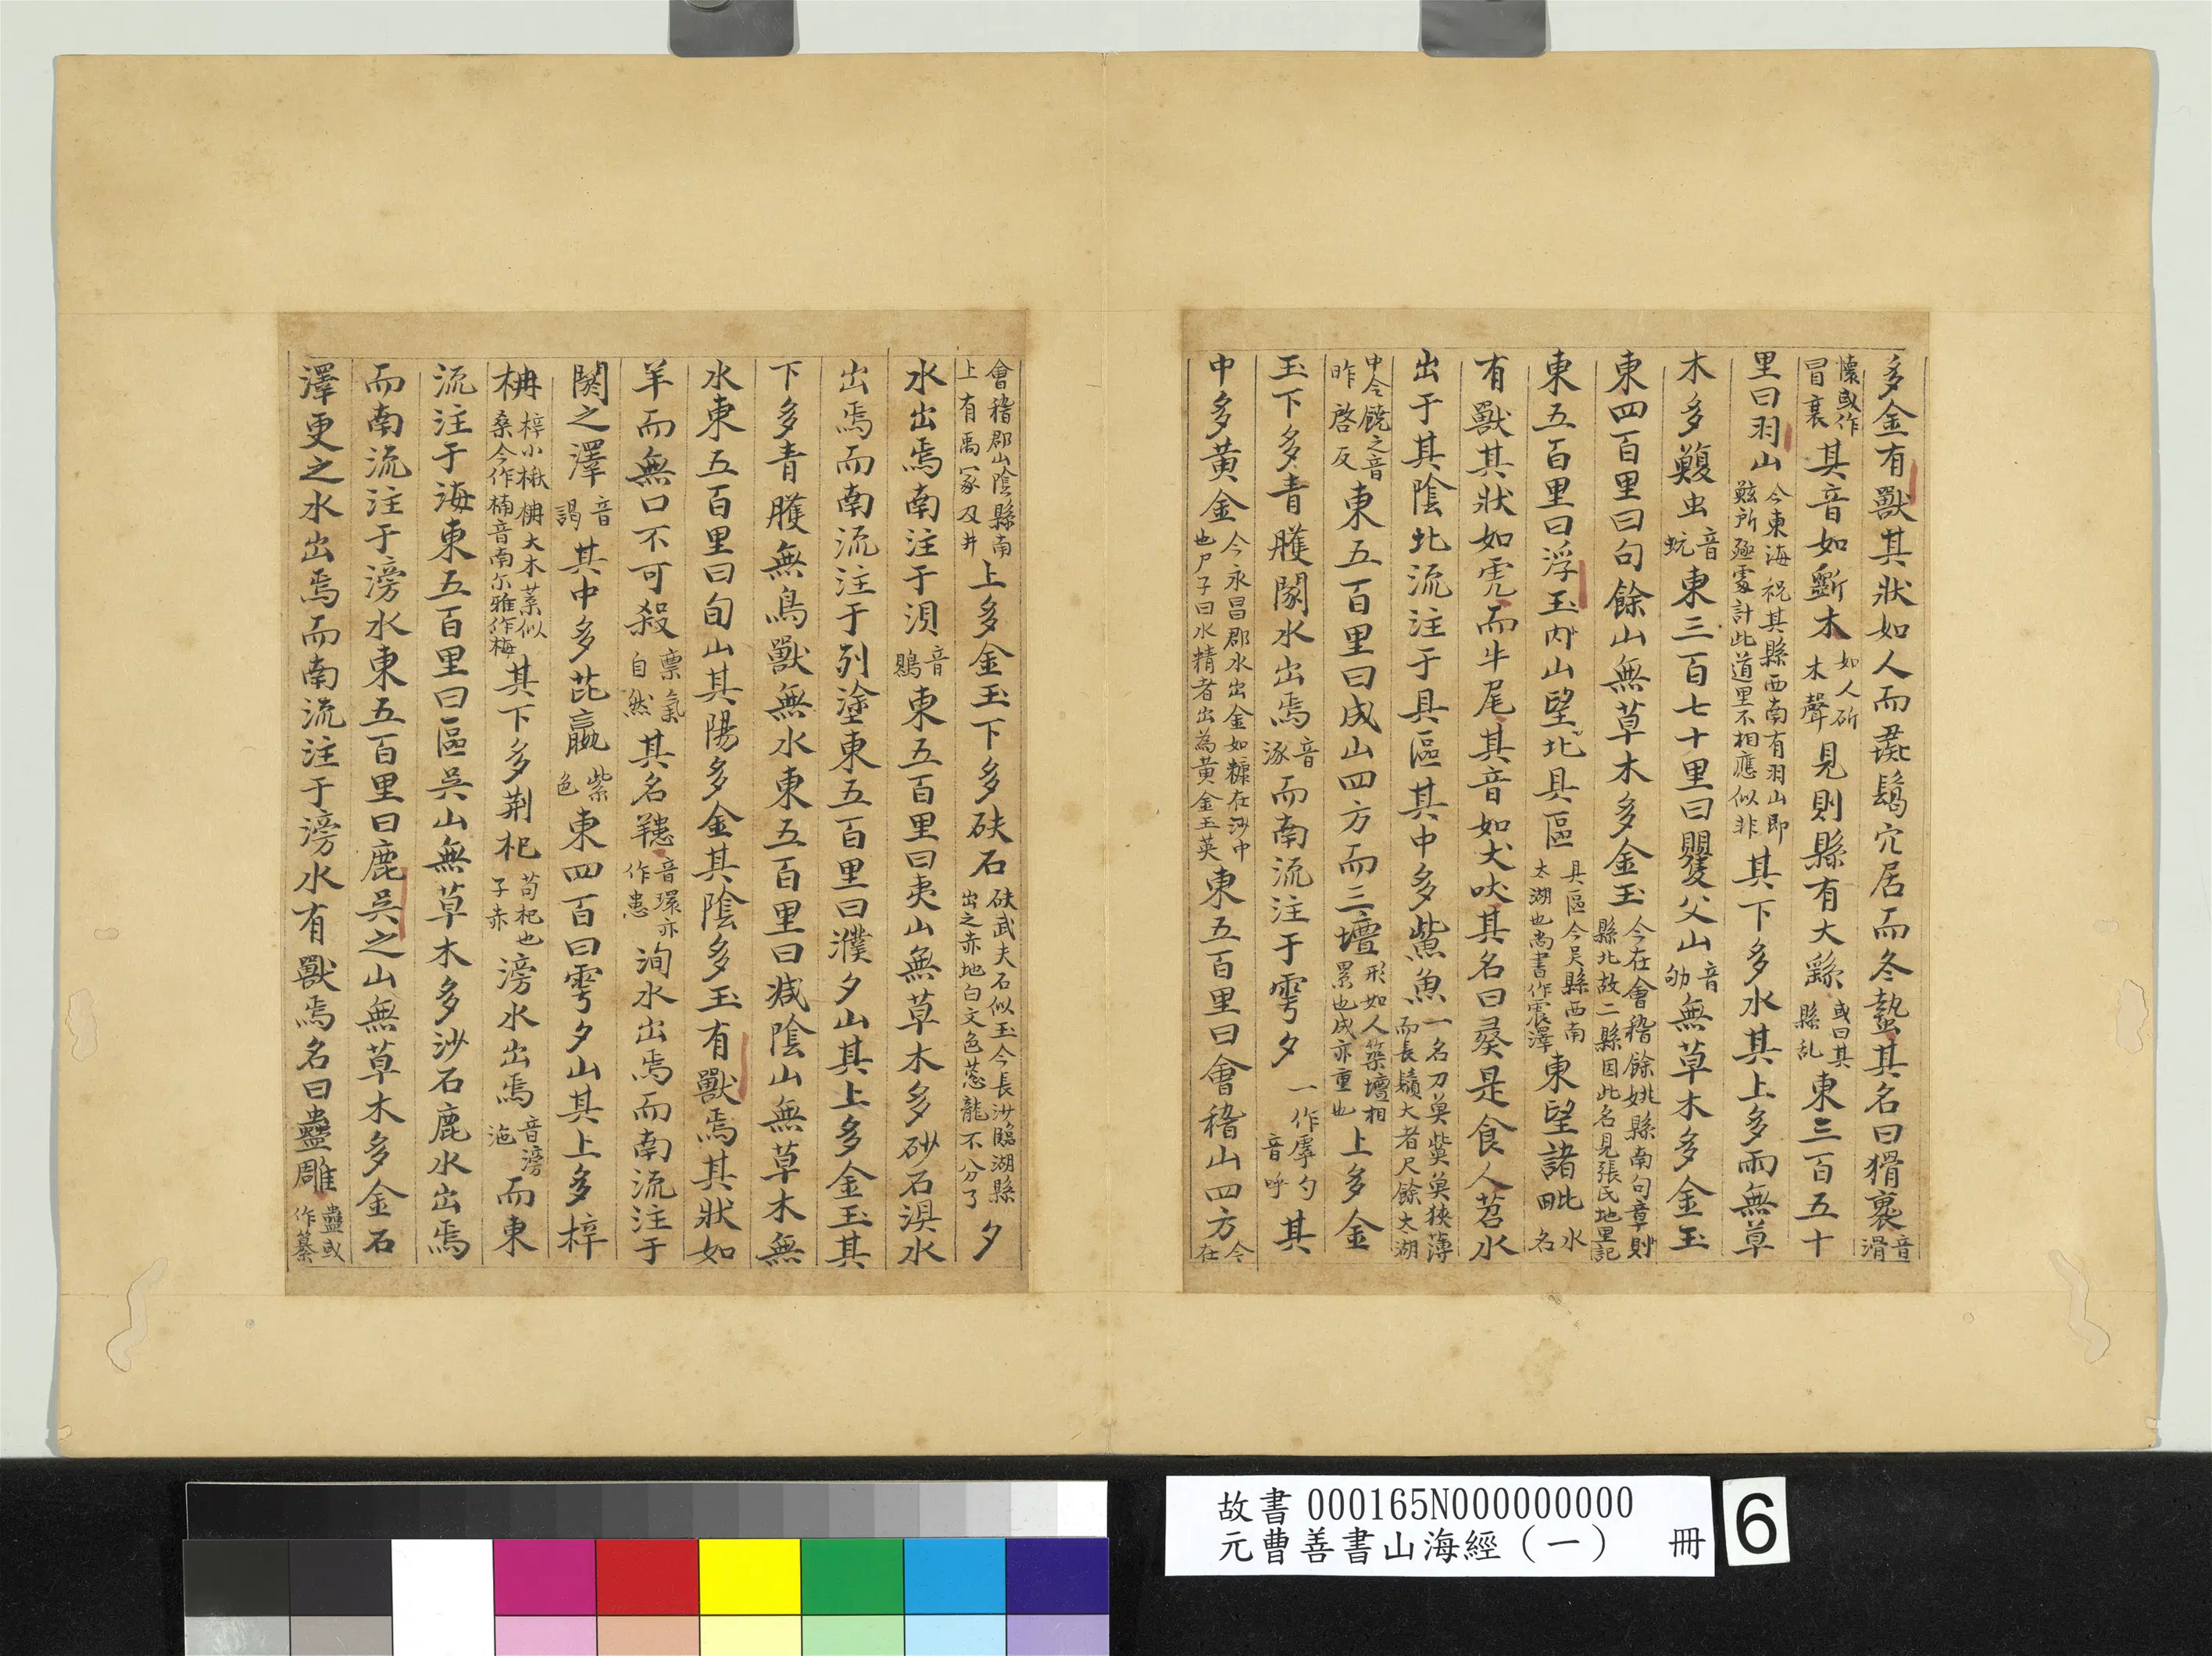 多金有獸其狀如人而彘鬣穴居而冬蟄其名曰猾褢音滑
懷或作冒裹其音如斲木如人斫木聲見則縣有大繇或曰其縣乱東三百五十
里曰羽山今東海祝其縣西南有羽山即鮌所殛處計此道里不相應似非其下多水其上多雨無草
木多蝮虫音蚖東三百七十里曰瞿父山音劬無草木多金玉
東四百里曰句餘山無草木多金玉今在會稽餘姚縣南句章縣北故二縣因此名見張氏地里記
東五百里曰浮玉之山北望具區具區今吳縣西南太湖也尚書作震澤東望諸毗水名
有獸其狀如虎而牛尾其音如犬吠其名曰彘是食人苕水
出于其陰北流注于具區其中多鮆魚一名刀魚鮆魚狹薄而長鬚大者尺餘太湖
中今饒之音昨啓反東五百里曰成山四方而三壇形如人築壇相累也成亦重也上多金
玉下多青雘閡水出焉音涿而南流注于雩夕一作虖勺音呼其
中多黃金今永昌郡水出金如糠在沙中也尸子曰水精者出為黃金玉英東五百里曰會稽山四方今在
會稽郡山陰縣南上有禹冢及井上多金玉下多砆石砆武夫石似玉今長沙臨湖縣出之赤地白文色蔥龍不分了夕
水出焉南注于湨音鶪東五百里曰夷山無草木多砂石湨水
出焉而南流注于列塗東五百里曰濮夕山其上多金玉其
下多青雘無鳥獸無水東五百里曰減陰山無草木無
水東五百里曰旬山其陽多金其陰多玉有獸焉其狀如
羊而無口不可殺稟氣自然其名䍺音環亦作患洵水出焉而南流注于
閼之澤音謁其中多茈蠃紫色東四百曰雩夕山其上多梓
枏梓小楸枏大木葉似桑今作楠音南尔雅作梅其下多荆杞苟杞也子赤滂水出焉音滂沲而東
流注于海東五百里曰區吳山無草木多沙石鹿水出焉
而南流注于滂水東五百里曰鹿吳之山無草木多金石
澤更之水出焉而南流注于滂水有獸焉名曰蠱雕蠱或作纂
故書 000165N000000000
元曹善書山海經（一） 冊
6